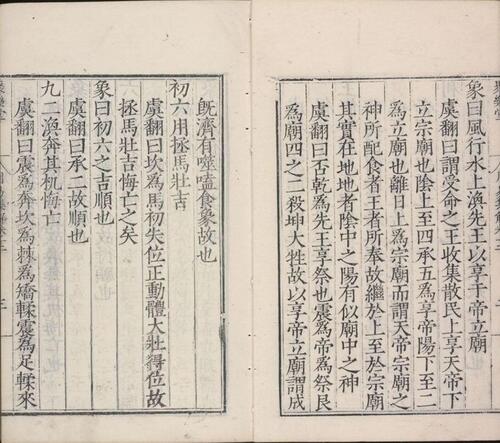 象曰風行水上渙先王以享于帝立廟
虞翻曰謂受命之王收集散民上享天帝下
立宗廟也陰上至四承五為享帝陽下至二
為立廟也離日上為宗廟而謂天帝宗廟之
神所配食者王者所奉故繼於上至於宗廟
其實在地地者陰中之陽有似廟中之神
虞翻曰否乾為先王享祭也震為帝為祭艮
為廟四之二殺坤大牲故以享帝立廟謂成
既濟有噬嗑食象故也
初六用拯馬壯吉
虞翻曰坎為馬初失位正動體大壯得位故
拯馬壯吉悔亡之矣
象曰初六之吉順也
虞翻曰承二故順也
九二渙奔其机悔亡
虞翻曰震為奔坎為棘為矯輮震為足輮來
三